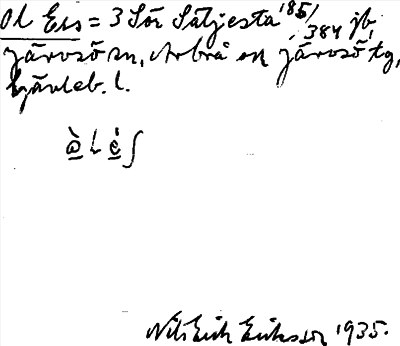 Ol Ers = 3 Sör Sätjesta 185/384 jb,
Järvsö sn, Arbrå en Järvsö tg,
Gävleb. l.
Nils Erik Eriksson 1935.